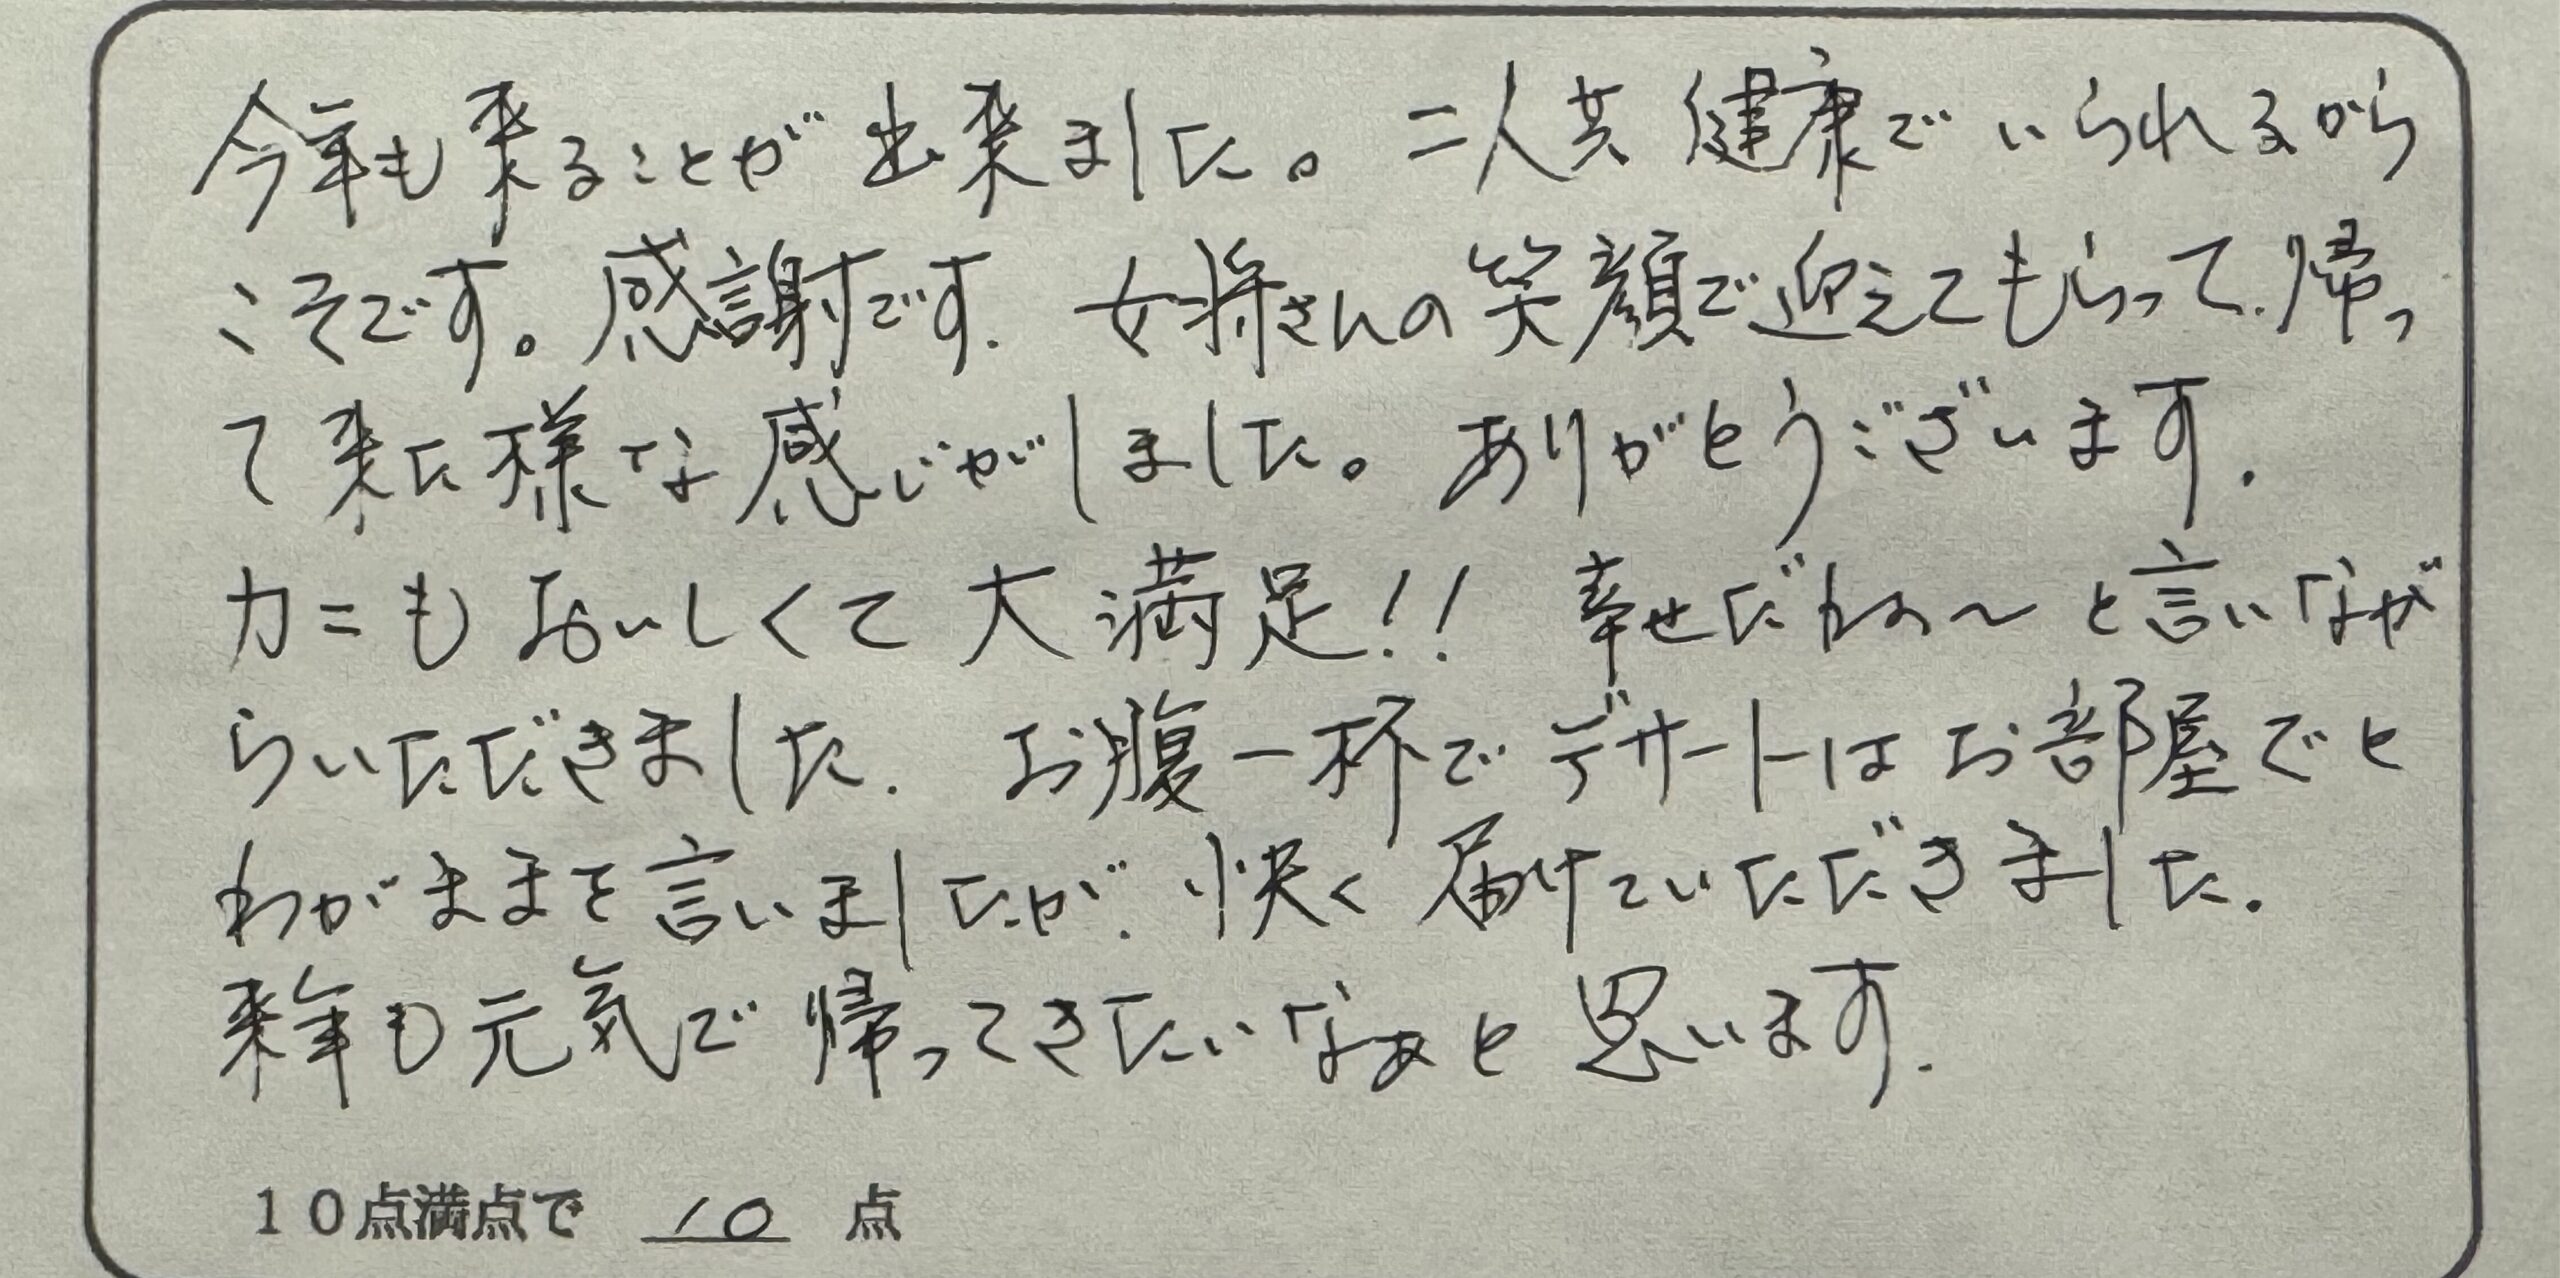 今年も来ることが出来ました。二人共健康でいられるから
こそです。感謝です. 女将さんの笑顔で迎えてもらって.帰っ
て来た様な感じがしました。ありがとうございます.
カニもおいしくて大満足!! 幸せだねぇ〜と言いなが
らいただきました. お腹一杯でデザートはお部屋でと
わがままを言いましたが.快く届けていただきました.
来年も元気で帰ってきたいなぁと思います.
10点満点で 10 点